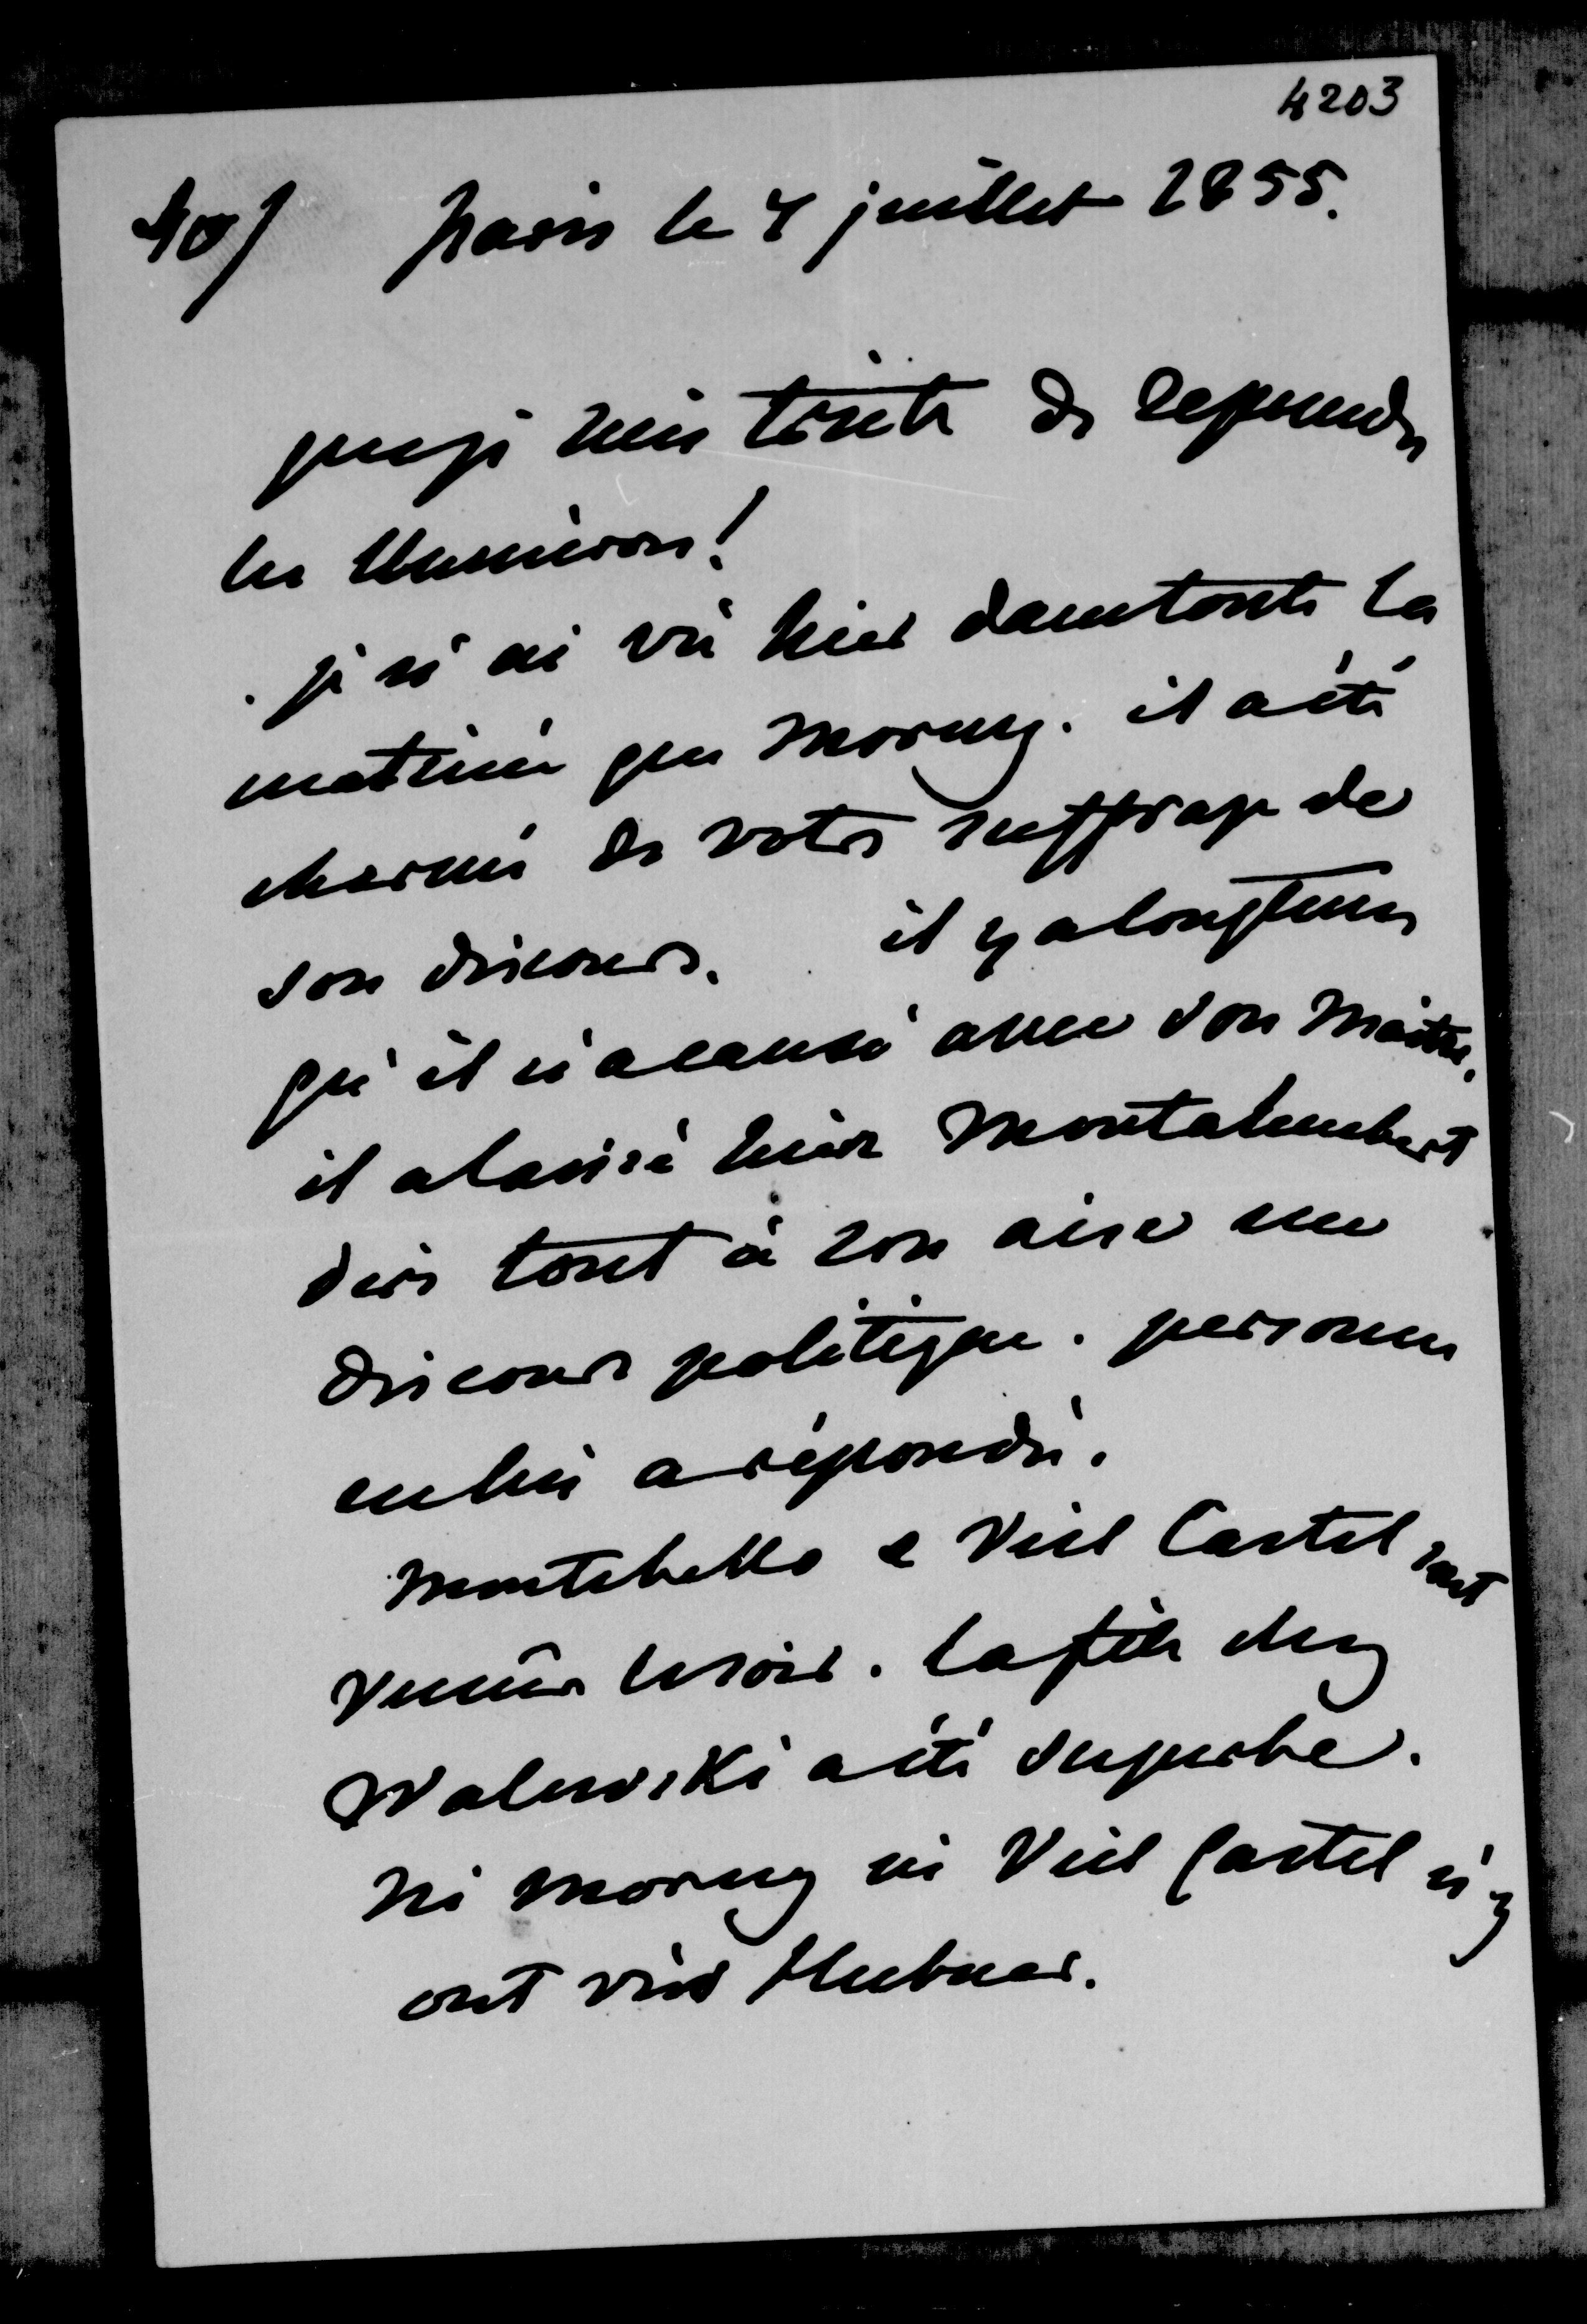 4203
40/ Paris le 4 juillet 1855.
que je suis triste de reprendre
les Numéros!
je n'ai vu hier dans toute la
matinée que Morny. il a été
charmé de votre suffrage de
son discours. il y a longtems
qu'il n'a causé avec son Maître.
il a laissé hier Montalembert
dire tout à son aise un
discours politique. personne
ne lui a répondu.
Montebello & Viel Castel sont
venus le soir. la fête chez
Walewski a été superbe.
ni Morny ni Viel Castel n'y
ont vu Hubner.